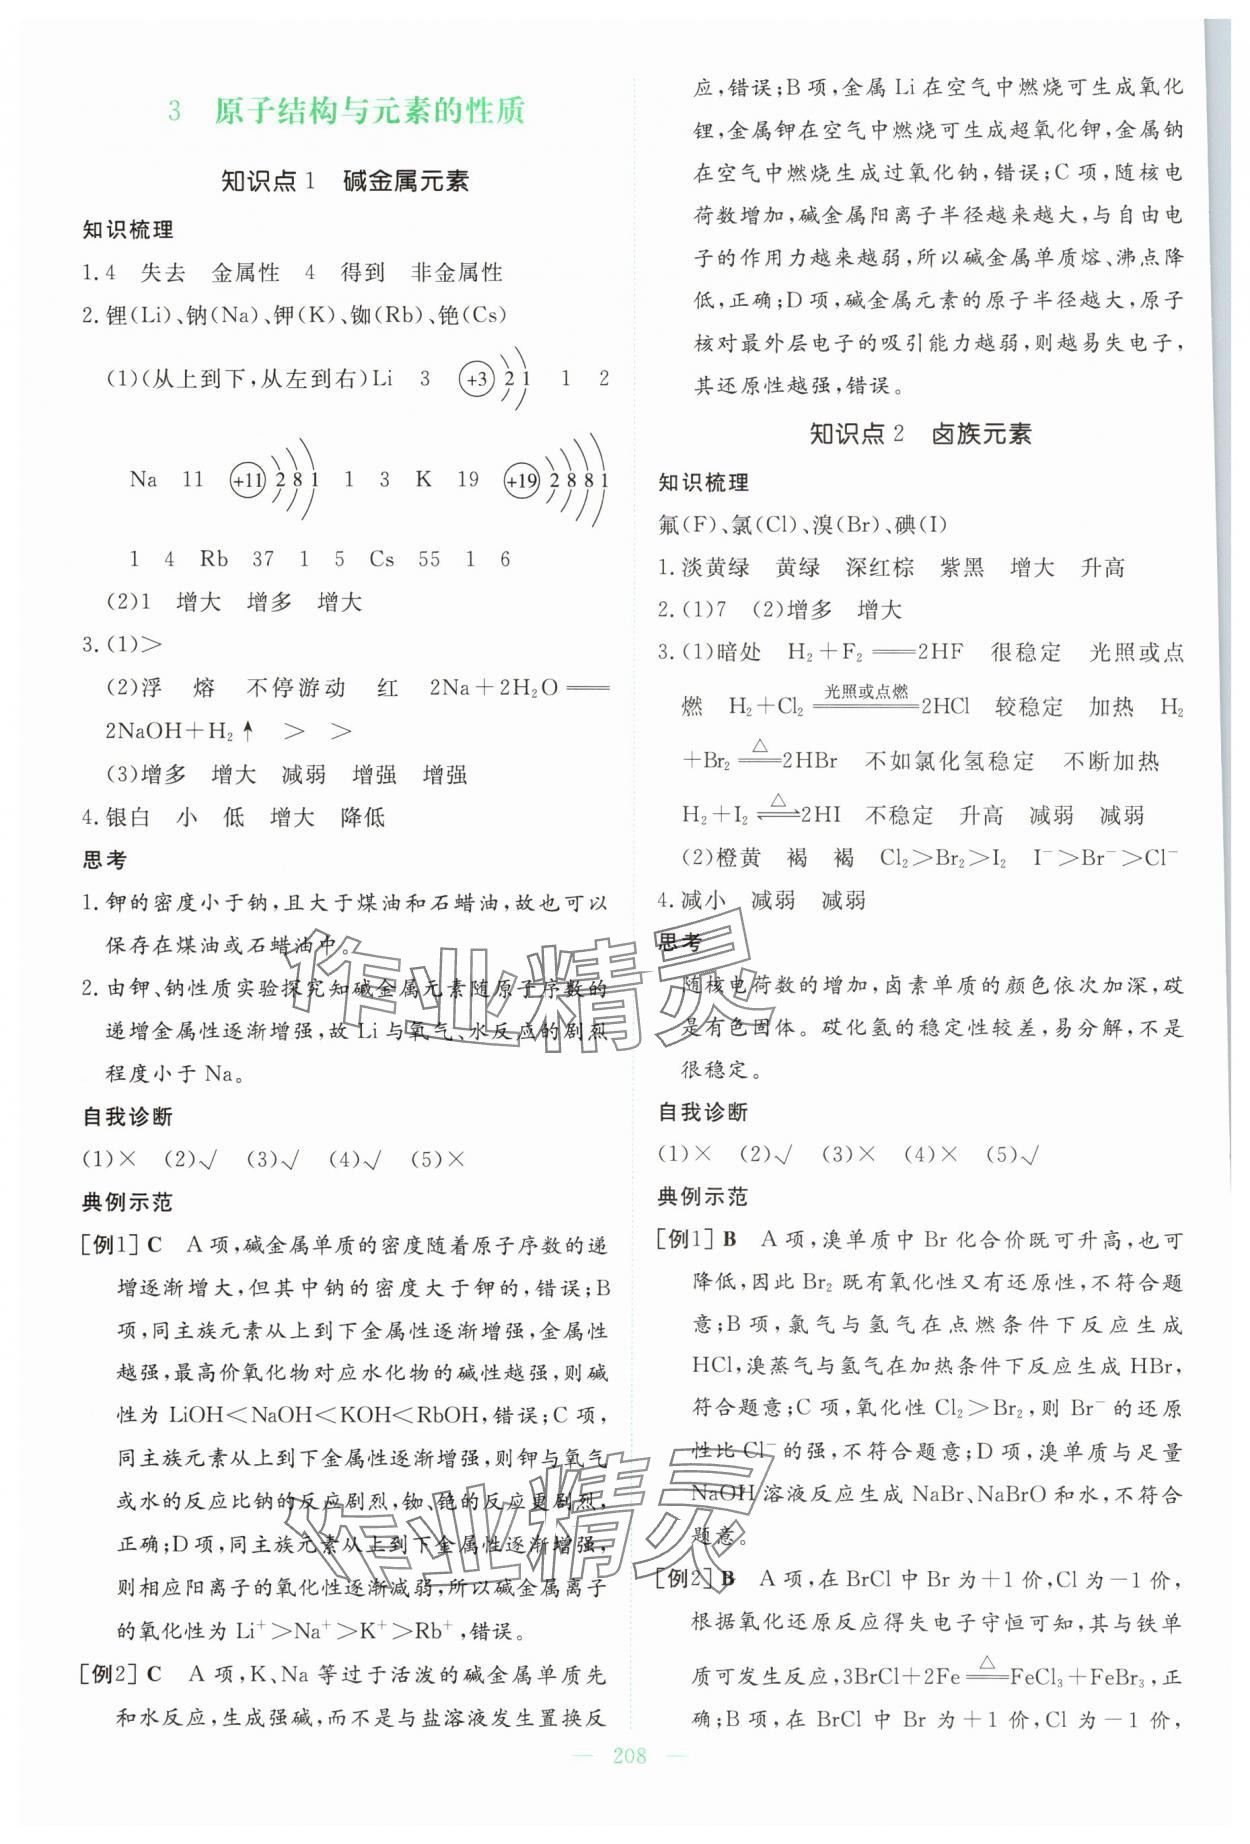 3 原子结构与元素的性质
知识点1 碱金属元素
知识梳理
1.4 失去 金属性 4 得到 非金属性
2.锂(Li)、钠(Na)、钾(K)、铷(Rb)、铯(Cs)
(1)(从上到下,从左到右)Li 3 +3 2 1 1 2
Na 11 +11 2 8 1 1 3 K 19 +19 2 8 8 1
1 4 Rb 37 1 5 Cs 55 1 6
(2)1 增大 增多 增大
3.(1)>
(2)浮 熔 不停游动 红 2Na+2H₂O══
2NaOH+H₂↑ > >
(3)增多 增大 减弱 增强 增强
4.银白 小 低 增大 降低
思考
1.钾的密度小于钠,且大于煤油和石蜡油,故也可以
保存在煤油或石蜡油中。
2.由钾、钠性质实验探究知碱金属元素随原子序数的
递增金属性逐渐增强,故Li与氧气、水反应的剧烈
程度小于Na。
自我诊断
(1)× (2)√ (3)√ (4)√ (5)×
典例示范
[例1] C A项,碱金属单质的密度随着原子序数的递
增逐渐增大,但其中钠的密度大于钾的,错误;B
项,同主族元素从上到下金属性逐渐增强,金属性
越强,最高价氧化物对应水化物的碱性越强,则碱
性为LiOH<NaOH<KOH<RbOH,错误;C项,
同主族元素从上到下金属性逐渐增强,则钾与氧气
或水的反应比钠的反应剧烈,铷、铯的反应更剧烈,
正确;D项,同主族元素从上到下金属性逐渐增强,
则相应阳离子的氧化性逐渐减弱,所以碱金属离子
的氧化性为Li⁺>Na⁺>K⁺>Rb⁺,错误。
[例2] C A项,K、Na等过于活泼的碱金属单质先
和水反应,生成强碱,而不是与盐溶液发生置换反
应,错误;B项,金属Li在空气中燃烧可生成氧化
锂,金属钾在空气中燃烧可生成超氧化钾,金属钠
在空气中燃烧生成过氧化钠,错误;C项,随核电
荷数增加,碱金属阳离子半径越来越大,与自由电
子的作用力越来越弱,所以碱金属单质熔、沸点降
低,正确;D项,碱金属元素的原子半径越大,原子
核对最外层电子的吸引能力越弱,则越易失电子,
其还原性越强,错误。
知识点2 卤族元素
知识梳理
氟(F)、氯(Cl)、溴(Br)、碘(I)
1.淡黄绿 黄绿 深红棕 紫黑 增大 升高
2.(1)7 (2)增多 增大
3.(1)暗处 H₂+F₂══2HF 很稳定 光照或点
燃 H₂+Cl₂ 光照或点燃══2HCl 较稳定 加热 H₂
+Br₂ △══2HBr 不如氯化氢稳定 不断加热
H₂+I₂ △⇌2HI 不稳定 升高 减弱 减弱
(2)橙黄 褐 褐 Cl₂>Br₂>I₂ I⁻>Br⁻>Cl⁻
4.减小 减弱 减弱
思考
随核电荷数的增加,卤素单质的颜色依次加深,砹
是有色固体。砹化氢的稳定性较差,易分解,不是
很稳定。
自我诊断
(1)× (2)√ (3)× (4)× (5)√
典例示范
[例1] B A项,溴单质中Br化合价既可升高,也可
降低,因此Br₂既有氧化性又有还原性,不符合题
意;B项,氯气与氢气在点燃条件下反应生成
HCl,溴蒸气与氢气在加热条件下反应生成HBr,
符合题意;C项,氧化性Cl₂>Br₂,则Br⁻的还原
性比Cl⁻的强,不符合题意;D项,溴单质与足量
NaOH溶液反应生成NaBr、NaBrO和水,不符合
题意。
[例2] B A项,在BrCl中Br为+1价,Cl为-1价,
根据氧化还原反应得失电子守恒可知,其与铁单
质可发生反应,3BrCl+2Fe △══FeCl₃+FeBr₃,正
确;B项,在BrCl中Br为+1价,Cl为-1价,
208
作业精灵
作业精灵